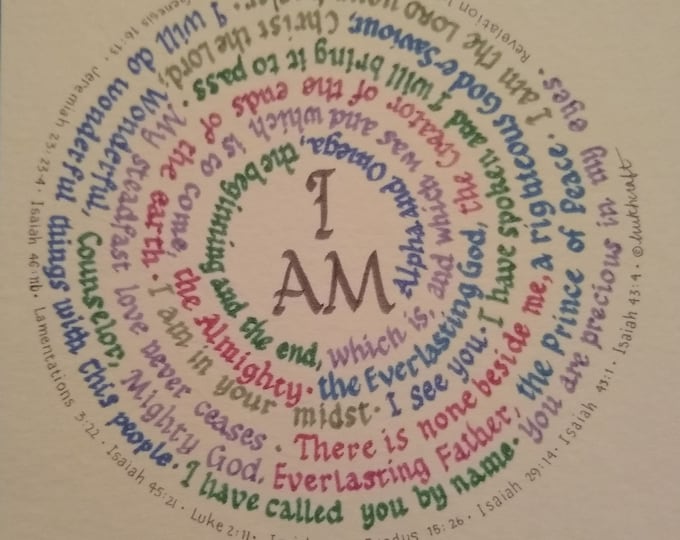 I
AM
Alpha and Omega, the beginning and the end,
which is, and which was and which is to come,
the Almighty.
the Everlasting God, the Creator of the ends of the earth.
I am in your midst.
I see you.
I have spoken and I will bring it to pass.
My steadfast love never ceases.
There is none beside me, a righteous God & Saviour;
Christ the Lord;
Wonderful, Counselor, Mighty God, Everlasting Father, the Prince of Peace.
I am the LORD your healer.
I will do wonderful things with this people.
I have called you by name.
You are precious in my eyes.
Revelation
Genesis 16:13 · Jeremiah 23:23-4 · Isaiah 46:11b · Lamentations 3:22 · Isaiah 45:21 · Luke 2:11 ·
Exodus 15:26 · Isaiah 29:14 · Isaiah 43:1 · Isaiah 43:4 ·